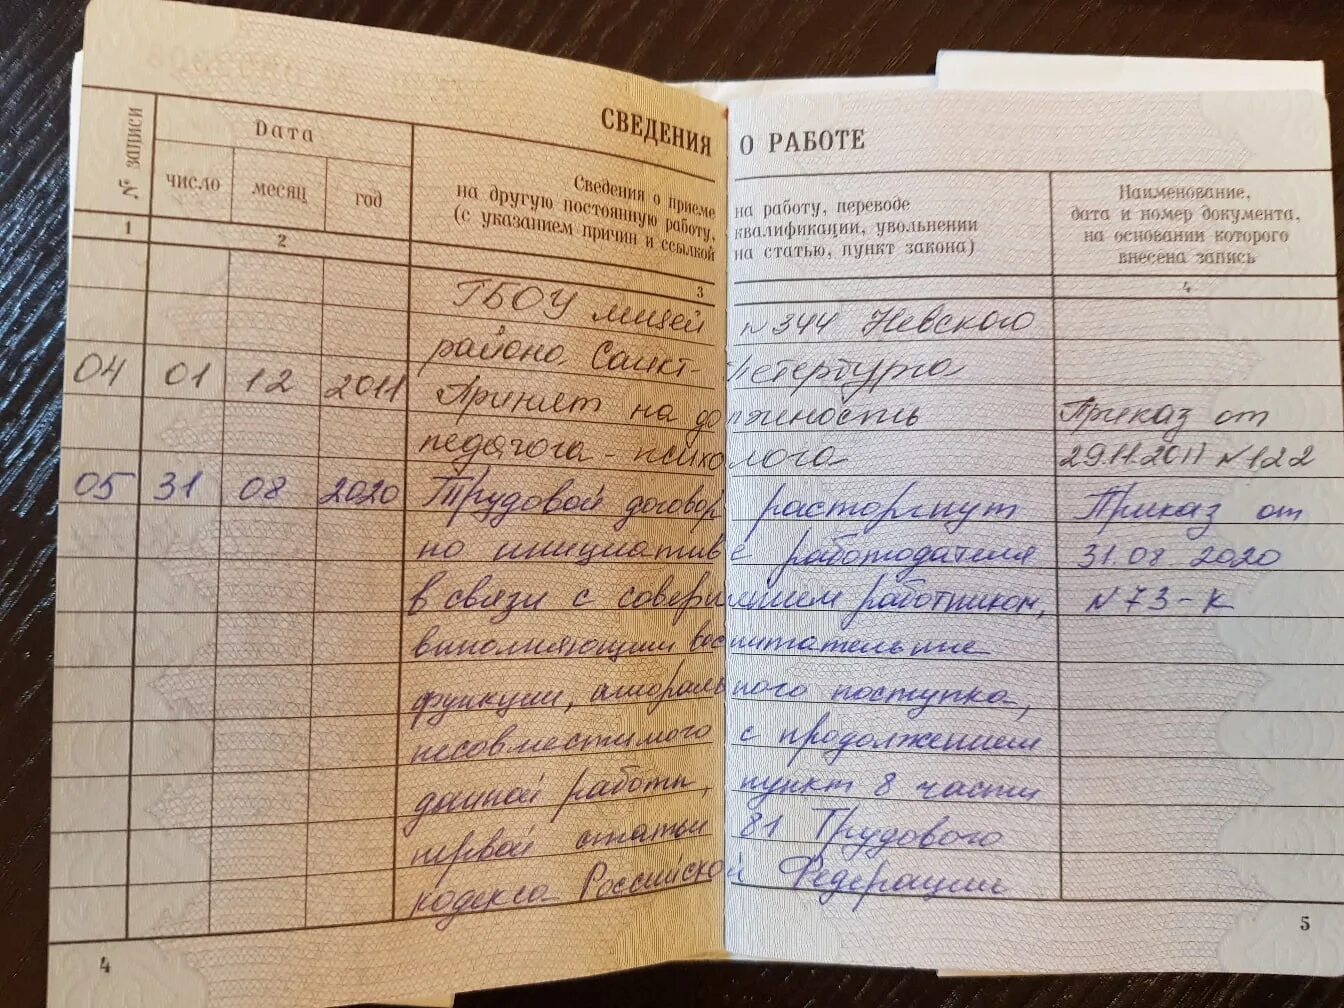 СВЕДЕНИЯ О РАБОТЕ
№ записи
Дата
число месяц год
Сведения о приеме на работу, переводе
на другую постоянную работу, квалификации, увольнении
(с указанием причин и ссылкой на статью, пункт закона)
Наименование,
дата и номер документа,
на основании которого
внесена запись
1 2 3 4
ГБОУ лицей №344 Невского
района Санкт-Петербурга
04 01 12 2011 Принят на должность Приказ от
педагога-психолога 29.11.2011 №122
05 31 08 2020 Трудовой договор расторгнут Приказ от
по инициативе работодателя 31.08.2020
в связи с совершением работником, №73-к
выполняющим воспитательные
функции, аморального поступка,
несовместимого с продолжением
данной работы, пункт 8 части
первой статьи 81 Трудового
кодекса Российской Федерации
4 5